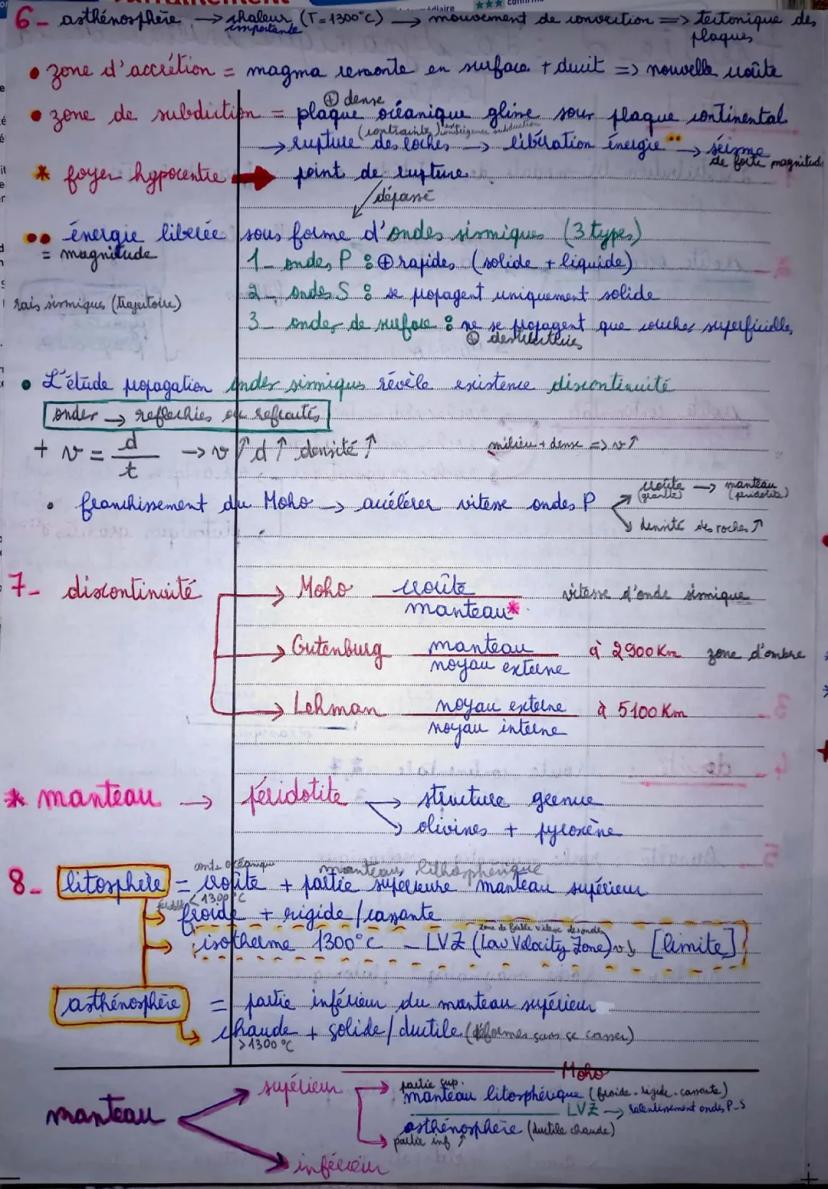 6_ asthénosphère → chaleur (T = 1300°C) → mouvement de convection ⇒ tectonique des
importante plaques
• zone d'accrétion = magma remonte en surface + durcit ⇒ nouvelle croûte
⊕ dense
• zone de subduction = plaque océanique glisse sous plaque continental
→ rupture des roches → libération énergie •• → séisme
de forte magnitude
* foyer hypocentre → point de rupture
dépassé
•• énergie liberée sous forme d'ondes sismiques (3 types)
= magnitude
1_ ondes P : ⊕ rapides (solide + liquide)
rais sismiques (trajectoire)
2_ ondes S : se propagent uniquement solide
3_ ondes de surface : ne se propagent que couches superficielles
⊕ destructrices
• L'étude propagation ondes sismiques révèle existence discontinuité
ondes → reflechies ou refractés
+ v = d/t → v ↑ d ↑ densité ↑ milieu + dense ⇒ v ↑
• franchissement du Moho → accélérer vitesse ondes P
croûte (granite) → manteau (péridotite)
densité des roches ↑
7_ discontinuité
→ Moho croûte / manteau* vitesse d'onde sismique
→ Gutenburg manteau / noyau externe à 2900 Km zone d'ombre
→ Lehman noyau externe / noyau interne à 5100 Km
* manteau → péridotite → structure grenue
→ olivines + pyroxène
manteau lithosphérique
8_ litosphère = croûte + partie supérieure manteau supérieur
< 1300°C
→ froide + rigide / cassante
zone de faible vitesse des ondes
→ isotherme 1300°C _ LVZ (Low Velocity Zone) v ↓ [limite]
asthénosphère = partie inférieur du manteau supérieur
→ chaude + solide / ductile (déformer sans se casser)
> 1300°C
Moho
manteau
supérieur
partie sup.
manteau litosphérique (froide - rigide - cassante)
LVZ → ralentissement ondes P_S
asthénosphère (ductile chaude)
partie inf
inférieur